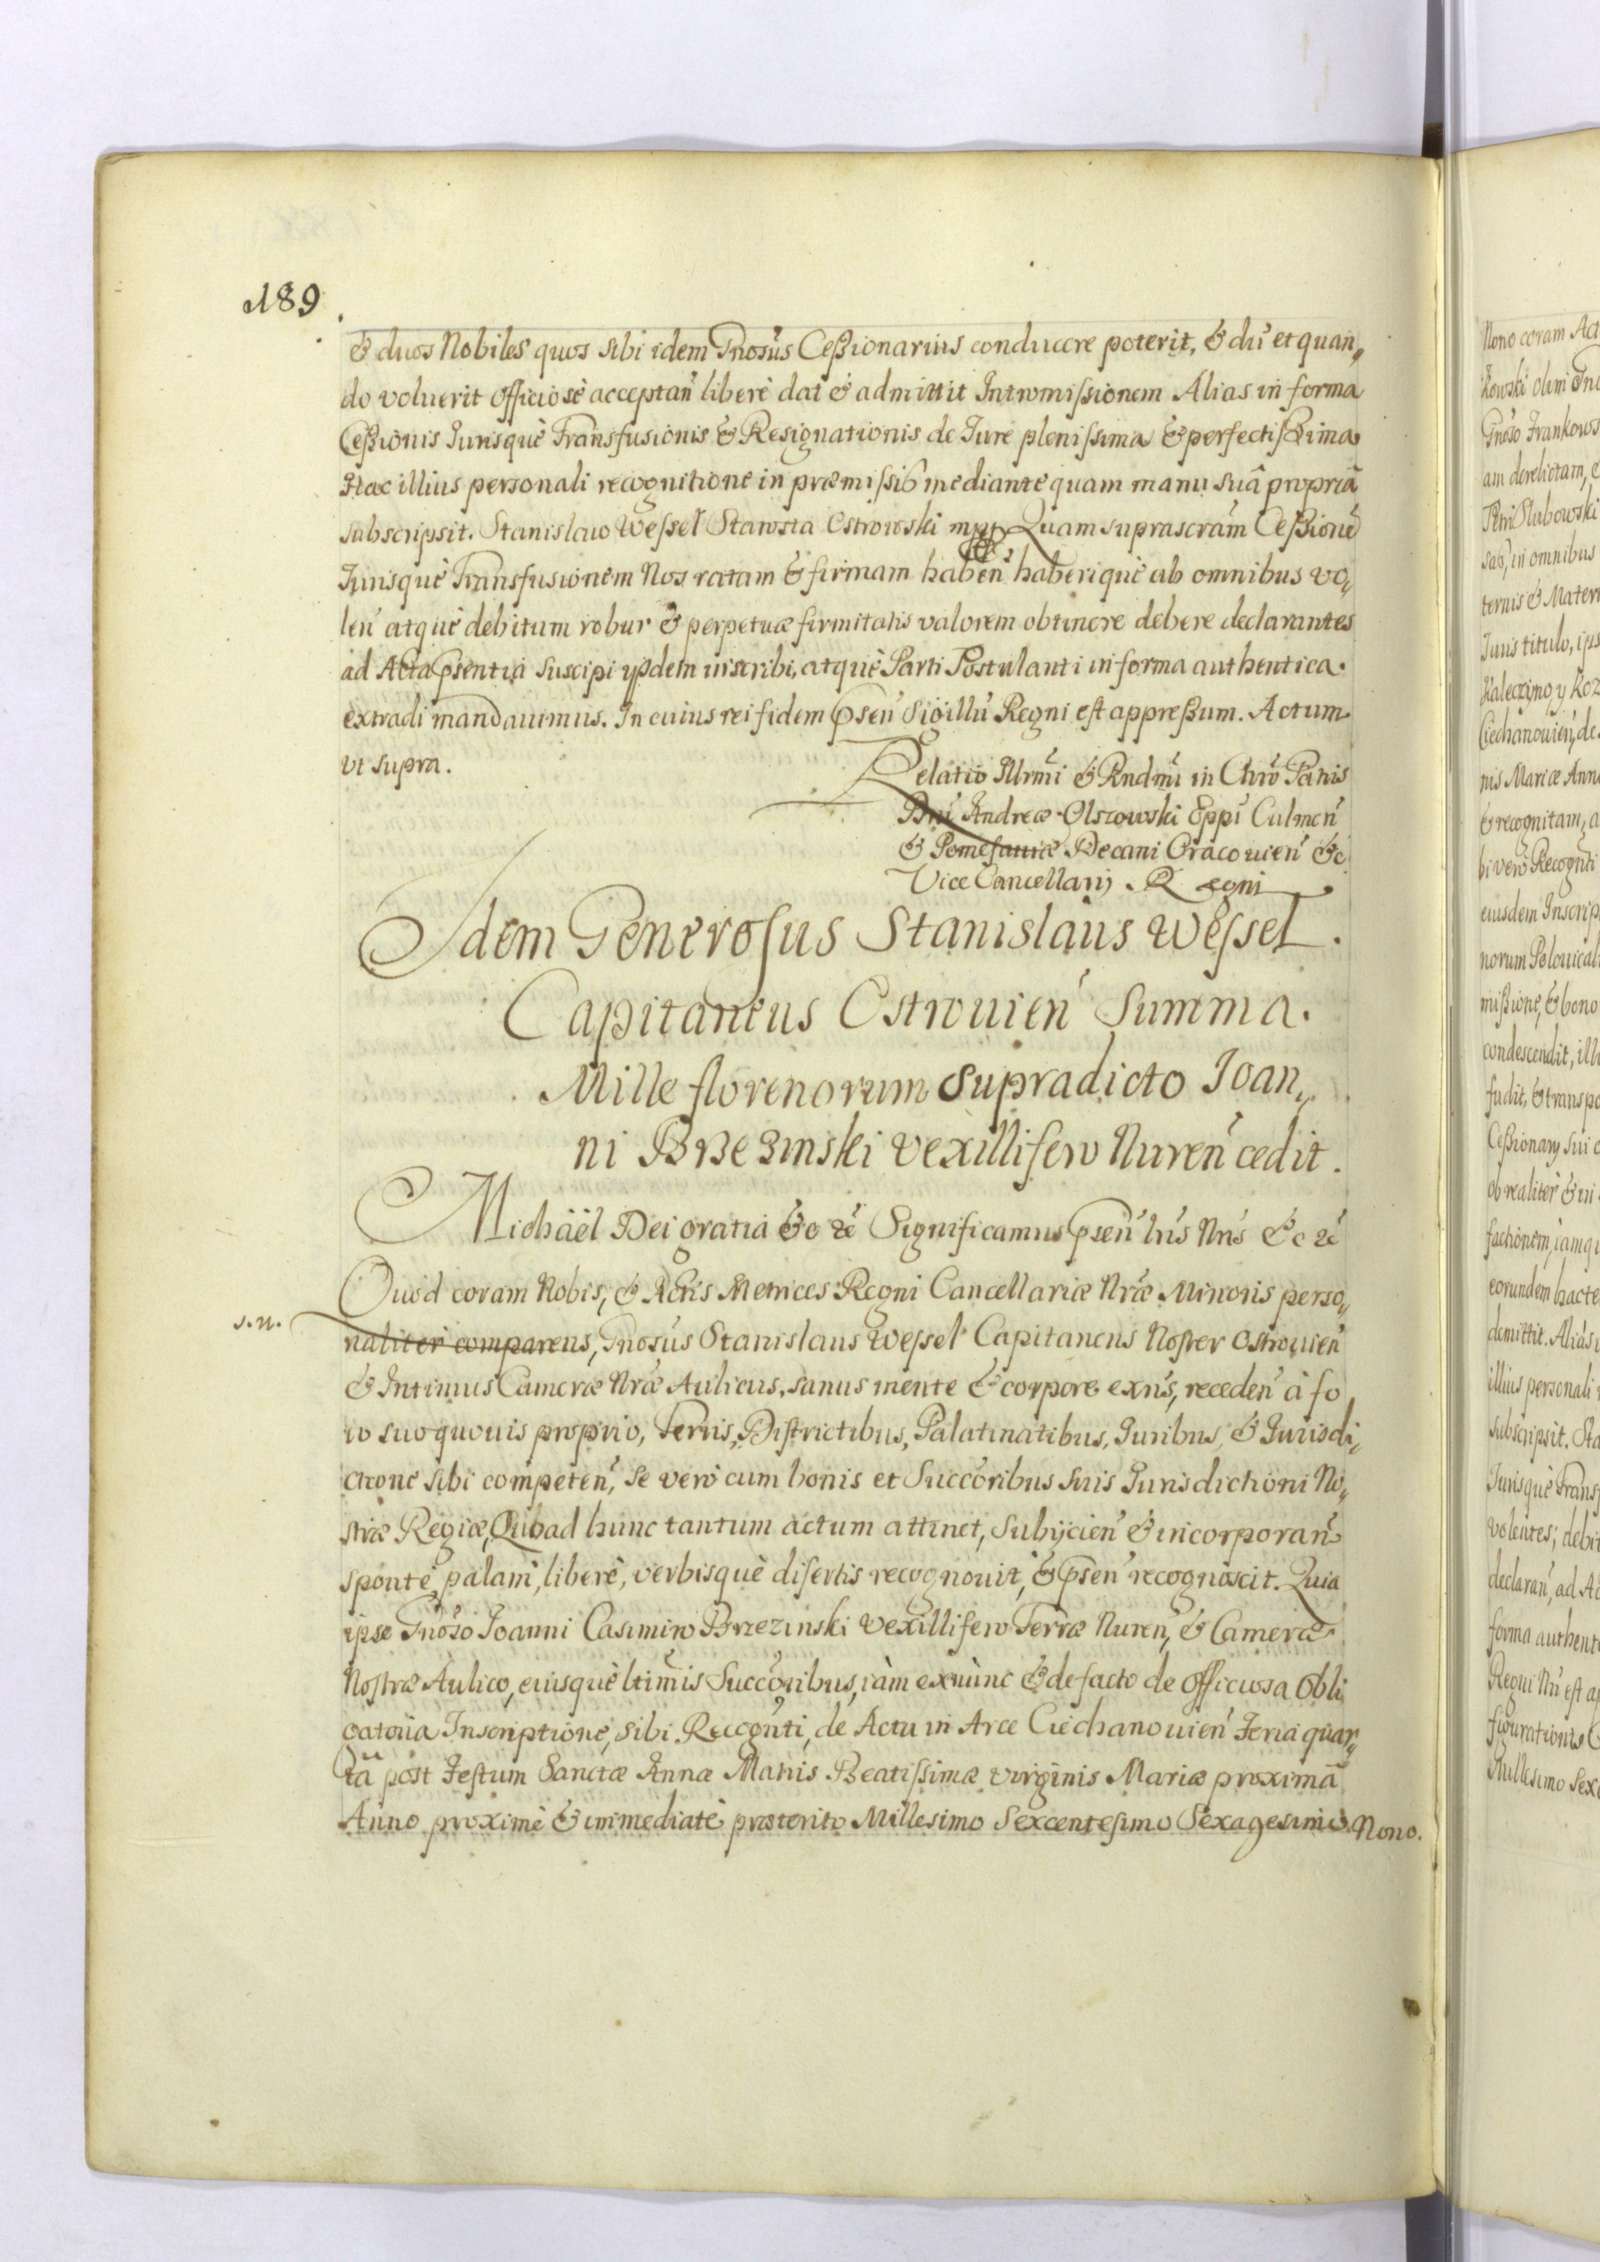 189
& duos Nobiles quos sibi idem Gnosus Cessionarius conducere poterit, & dū et quan„
do voluerit officiosè acceptan̄ liberè dat & admittit Intromissionem Alias in forma
Cessionis Jurisquè Transfusionis & Resignationis de Jure plenissima & perfectissima
Hac illius personali recognitione in præmissis mediante quam manu suâ propriâ
subscripsit. Stanislaw Wessel Starosta Ostrowski mpp Quam suprascrām Cessionē
Jurisquè Transfusionem Nos ratam & firmam haben̄ haberiquè ab omnibus vo„
len̄ atquè debitum robur & perpetuæ firmitatis valorem obtinere debere declarantes
ad Acta psentia suscipi ysdem inscribi, atquè Parti Postulanti in forma authentica
extradi mandavimus. In cuius rei fidem psen̄ Sigillū Regni est appressum. Actum
vt supra.
Relatio Illrmi & Rndmi in Chrō Patris
Dni Andreæ Olszowski Eppi Culmen̄
& Pomesaniæ Decani Cracouien̄ &c
Vice Cancellarij Regni
Idem Generosus Stanislaus Wessel
Capitaneus Ostrouien̄ Summa
Mille florenorum supradicto Ioan„
ni Brzezinski vexillifero Nuren̄ cedit.
Michäel Dei gratia &c &c Significamus psen̄ lrīs Nrīs &c &c
Quod coram Nobis, & Actis Metrices Regni Cancellariæ Nræ Minoris perso„
s.n.
naliter comparens, Gnosus Stanislaus Wessel Capitaneus Noster Ostrouien̄
& Intimus Cameræ Nræ Aulicus, sanus mente & corpore exn̄s, receden̄ à fo
ro suo quouis proprio, Terris, Districtibus, Palatinatibus, Juribus, & Jurisdi„
ctione sibi competen̄, se verò cum bonis et Succōribus suis Jurisdictioni No„
stræ Regiæ, Quoad hunc tantum actum attinet, subijcien̄ & incorporan̄
sponte, palam, liberè, verbisquè disertis recognouit, & psen̄ recognoscit. Quia
ipse Gnoso Joanni Casimiro Brzezinski vexillifero Terræ Nuren̄, & Cameræ
Nostræ Aulico, eiusquè ltimis Succōribus, iàm exnùnc & de facto de officiosa Obli
gatoria Inscriptione, sibi Recognti, de Actu in Arce Ciechanouien̄ Feria quar„
tā post Festum Sanctæ Annæ Matris Beatissimæ Virginis Mariæ proximā
Anno proximè & immediatè præterito Millesimo Sexcentesimo Sexagesimo Nono.
Nono coram Act
am derelictam, e
Petri Slabowski
ternis & Matern
Juris titulo, ips
Ciechanouien̄, de
nis Mariæ Anna
& recognitam, a
bi verò Recognti
eiusdem Inscrip
missione, & bono
condescendit, ill
fudit, & transpo
Cessionarij sui
ob realiter & in
factionem, iàm q
eorundem hacte
demittit. Alias
illius personali
subscripsit. Sta
Jurisquè Trans
volentes, debi
declaran̄, ad Ac
forma authent
Millesimo Sex